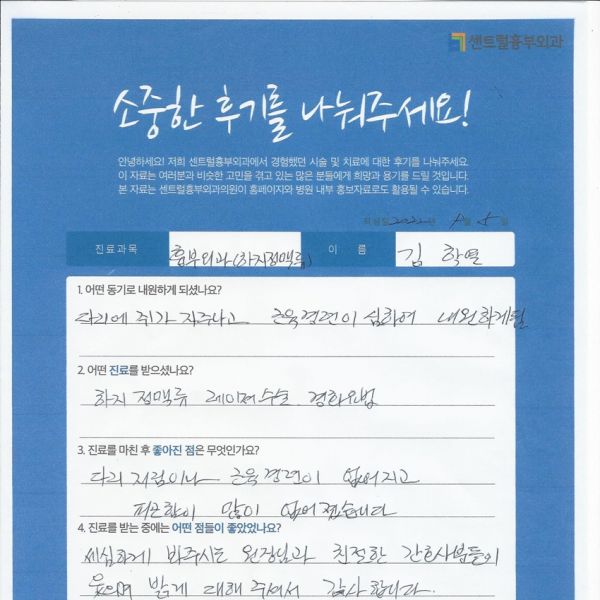 센트럴흉부외과
소중한 후기를 나눠주세요!
안녕하세요! 저희 센트럴흉부외과에서 경험했던 시술 및 치료에 대한 후기를 나눠주세요.
이 자료는 여러분과 비슷한 고민을 겪고 있는 많은 분들에게 희망과 용기를 드릴 것입니다.
본 자료는 센트럴흉부외과의원이 홈페이지와 병원 내부 홍보자료로도 활용될 수 있습니다.
작성일 2022년 월 5일
진료과목 흉부외과(하지정맥류) 이 름 김 학열
1. 어떤 동기로 내원하게 되셨나요?
다리에 쥐가 자주나고 근육경련이 심하여 내원하게됨
2. 어떤 진료를 받으셨나요?
하지 정맥류 레이져수술 경화요법
3. 진료를 마친 후 좋아진 점은 무엇인가요?
다리 저림이나 근육경련이 없어지고
피곤함이 많이 없어졌습니다
4. 진료를 받는 중에는 어떤 점들이 좋았었나요?
세심하게 봐주시는 원장님과 친절한 간호사분들의
웃으며 밝게 대해 주어서 감사합니다.